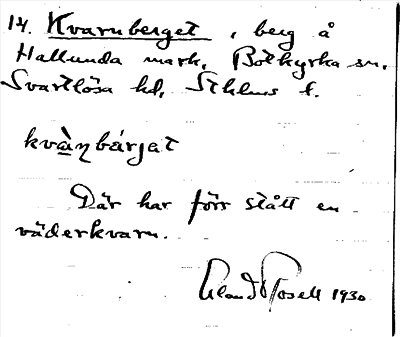 14. Kvarnberget, berg å
Hallunda mark, Botkyrka sn,
Svartlösa hd, Sthlms l.
kvà̱ɳbárjat
Där har förr stått en
väderkvarn.
1930